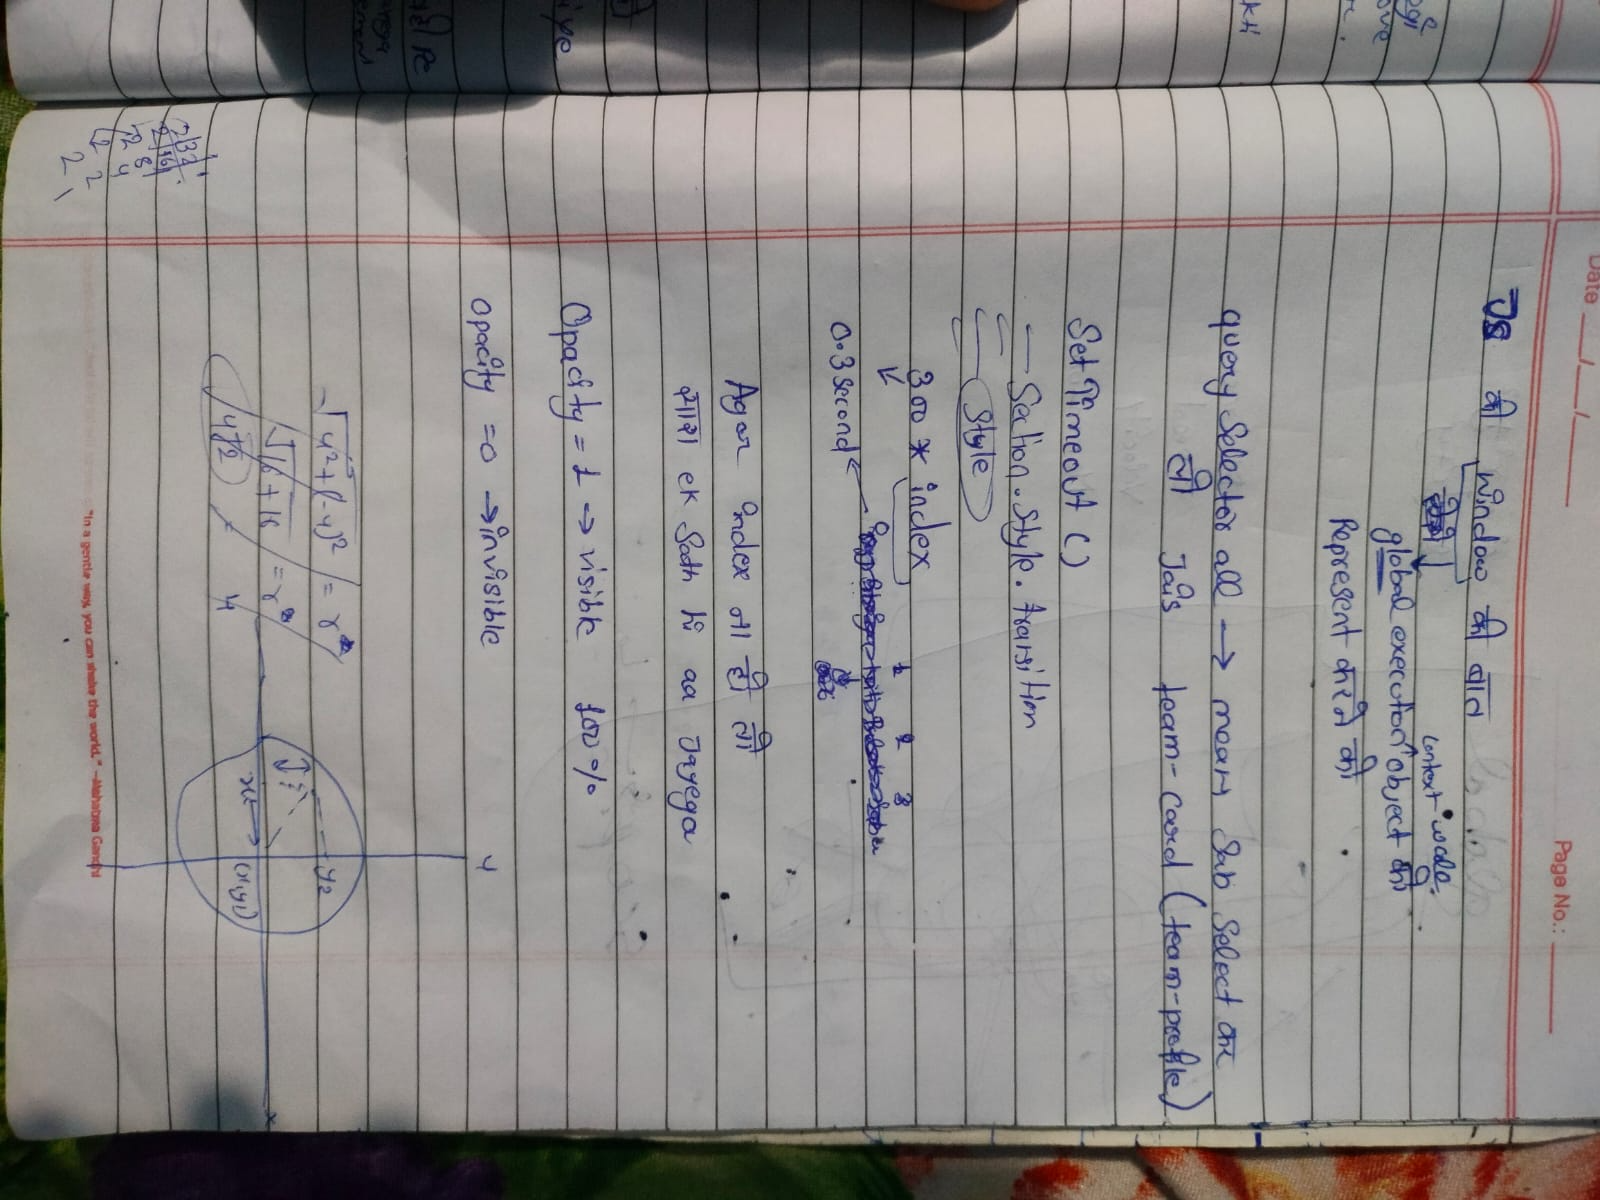 Date
Page No.:
JS की window की बात
context code.
global execution object की
Represent करने की
query Selector all → means sab select कर
लो Jais team-card (team-profile)
Set Timeout ()
Section.Style.transition
Style
300 * index 1 2 3
0.3 second
Agar index ना हो तो
सारा ek Sath hi aa Jayega
Opacity = 1 → visible 100%
Opacity = 0 → invisible
y
√4²+(-4)² = r
√16+16 = r
4√2
y2
(x1y1)
x
"In a gentle way, you can shake the world." —Mahatma Gandhi